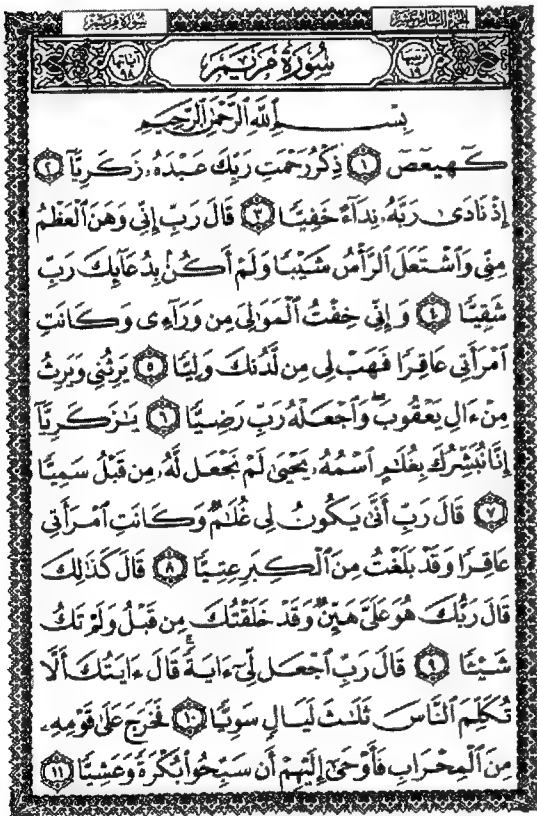 سُورَةُ مَرْيَمَ
الجُزْءُ السَّادِسَ عَشَرَ
آيَاتُهَا ٩٨
سُورَةُ مَرْيَمَ
تَرْتِيبُهَا ١٩
بِسْمِ ٱللَّهِ ٱلرَّحْمَٰنِ ٱلرَّحِيمِ
كٓهيعٓصٓ ١ ذِكْرُ رَحْمَتِ رَبِّكَ عَبْدَهُۥ زَكَرِيَّآ ٢
إِذْ نَادَىٰ رَبَّهُۥ نِدَآءً خَفِيًّا ٣ قَالَ رَبِّ إِنِّى وَهَنَ ٱلْعَظْمُ
مِنِّى وَٱشْتَعَلَ ٱلرَّأْسُ شَيْبًا وَلَمْ أَكُنۢ بِدُعَآئِكَ رَبِّ
شَقِيًّا ٤ وَإِنِّى خِفْتُ ٱلْمَوَٰلِىَ مِن وَرَآءِى وَكَانَتِ
ٱمْرَأَتِى عَاقِرًا فَهَبْ لِى مِن لَّدُنكَ وَلِيًّا ٥ يَرِثُنِى وَيَرِثُ
مِنْ ءَالِ يَعْقُوبَ ۖ وَٱجْعَلْهُ رَبِّ رَضِيًّا ٦ يَٰزَكَرِيَّآ
إِنَّا نُبَشِّرُكَ بِغُلَٰمٍ ٱسْمُهُۥ يَحْيَىٰ لَمْ نَجْعَل لَّهُۥ مِن قَبْلُ سَمِيًّا
٧ قَالَ رَبِّ أَنَّىٰ يَكُونُ لِى غُلَٰمٌ وَكَانَتِ ٱمْرَأَتِى
عَاقِرًا وَقَدْ بَلَغْتُ مِنَ ٱلْكِبَرِ عِتِيًّا ٨ قَالَ كَذَٰلِكَ
قَالَ رَبُّكَ هُوَ عَلَىَّ هَيِّنٌ وَقَدْ خَلَقْتُكَ مِن قَبْلُ وَلَمْ تَكُ
شَيْـًٔا ٩ قَالَ رَبِّ ٱجْعَل لِّىٓ ءَايَةً ۚ قَالَ ءَايَتُكَ أَلَّا
تُكَلِّمَ ٱلنَّاسَ ثَلَٰثَ لَيَالٍ سَوِيًّا ١٠ فَخَرَجَ عَلَىٰ قَوْمِهِۦ
مِنَ ٱلْمِحْرَابِ فَأَوْحَىٰٓ إِلَيْهِمْ أَن سَبِّحُوا۟ بُكْرَةً وَعَشِيًّا ١١